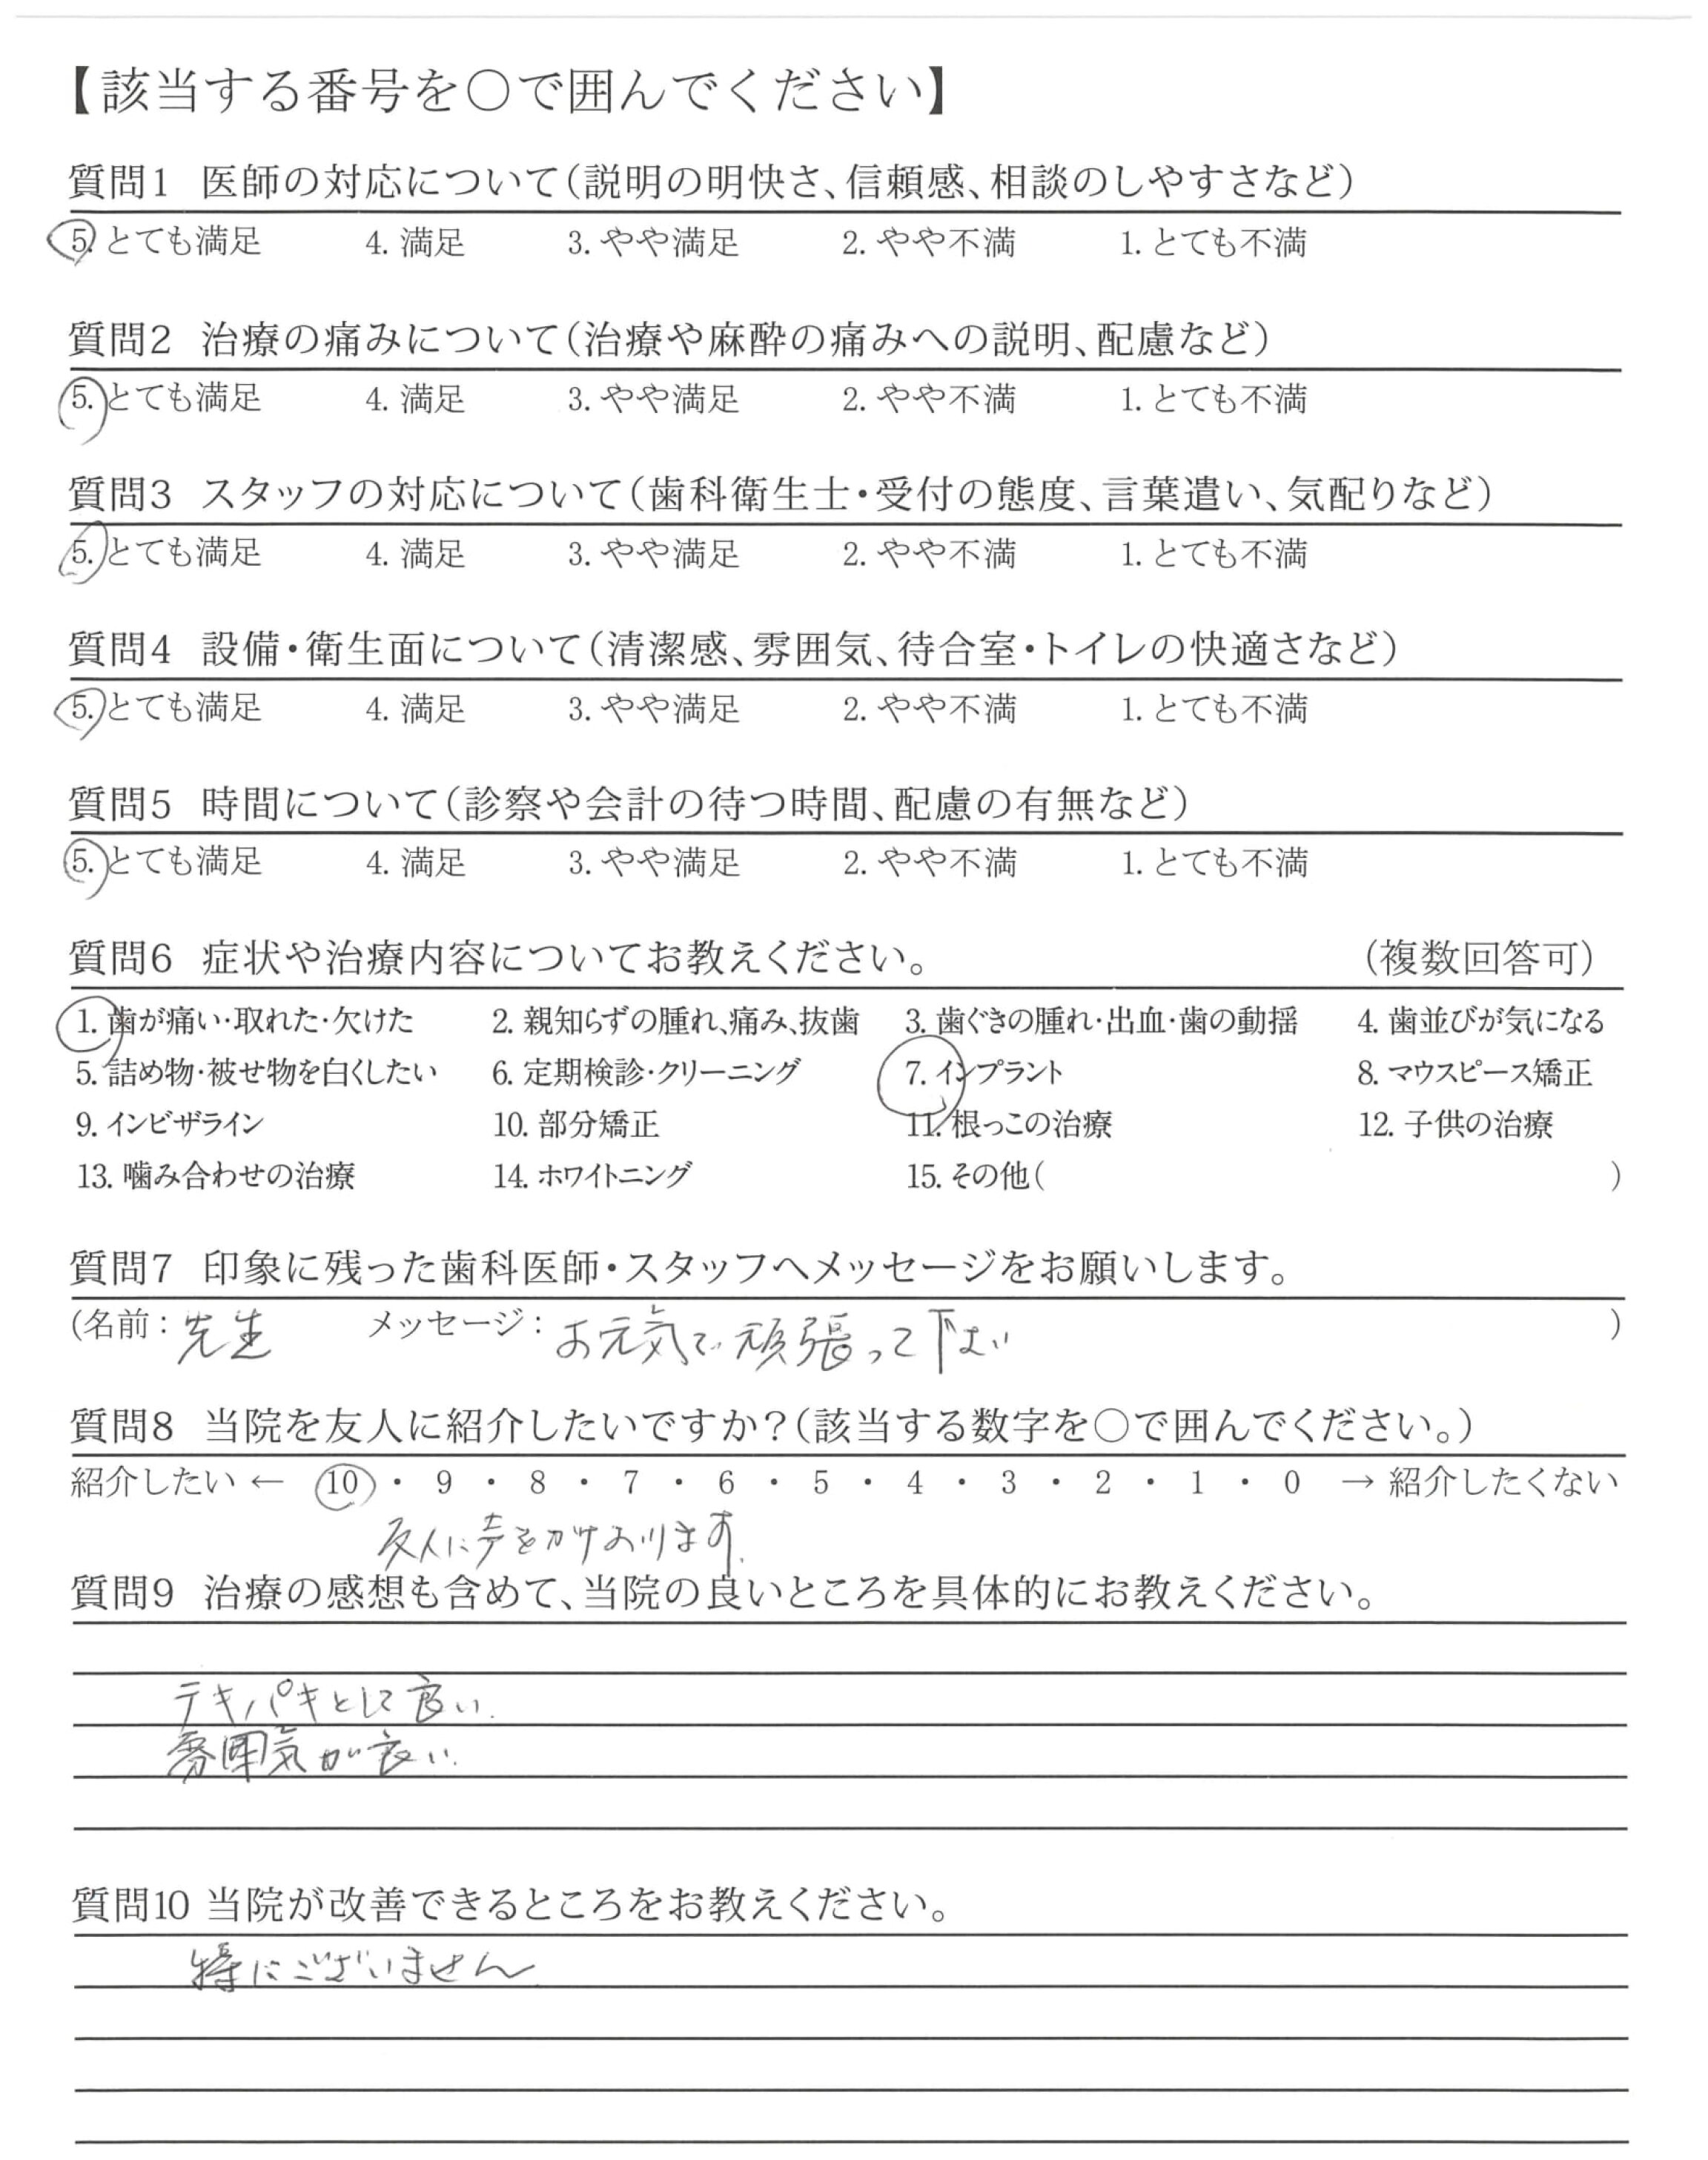 【該当する番号を○で囲んでください】
質問1 医師の対応について(説明の明快さ、信頼感、相談のしやすさなど)
5. とても満足 4. 満足 3. やや満足 2. やや不満 1. とても不満
質問2 治療の痛みについて(治療や麻酔の痛みへの説明、配慮など)
5. とても満足 4. 満足 3. やや満足 2. やや不満 1. とても不満
質問3 スタッフの対応について(歯科衛生士・受付の態度、言葉遣い、気配りなど)
5. とても満足 4. 満足 3. やや満足 2. やや不満 1. とても不満
質問4 設備・衛生面について(清潔感、雰囲気、待合室・トイレの快適さなど)
5. とても満足 4. 満足 3. やや満足 2. やや不満 1. とても不満
質問5 時間について(診察や会計の待つ時間、配慮の有無など)
5. とても満足 4. 満足 3. やや満足 2. やや不満 1. とても不満
質問6 症状や治療内容についてお教えください。 (複数回答可)
1. 歯が痛い・取れた・欠けた 2. 親知らずの腫れ、痛み、抜歯 3. 歯ぐきの腫れ・出血・歯の動揺 4. 歯並びが気になる
5. 詰め物・被せ物を白くしたい 6. 定期検診・クリーニング 7. インプラント 8. マウスピース矯正
9. インビザライン 10. 部分矯正 11. 根っこの治療 12. 子供の治療
13. 噛み合わせの治療 14. ホワイトニング 15. その他( )
質問7 印象に残った歯科医師・スタッフへメッセージをお願いします。
(名前:先生 メッセージ:お元気で頑張って下さい )
質問8 当院を友人に紹介したいですか?(該当する数字を○で囲んでください。)
紹介したい ← 10 ・ 9 ・ 8 ・ 7 ・ 6 ・ 5 ・ 4 ・ 3 ・ 2 ・ 1 ・ 0 → 紹介したくない
友人に声をかけおります.
質問9 治療の感想も含めて、当院の良いところを具体的にお教えください。
テキパキとして良い.
雰囲気が良い.
質問10 当院が改善できるところをお教えください。
特にございません